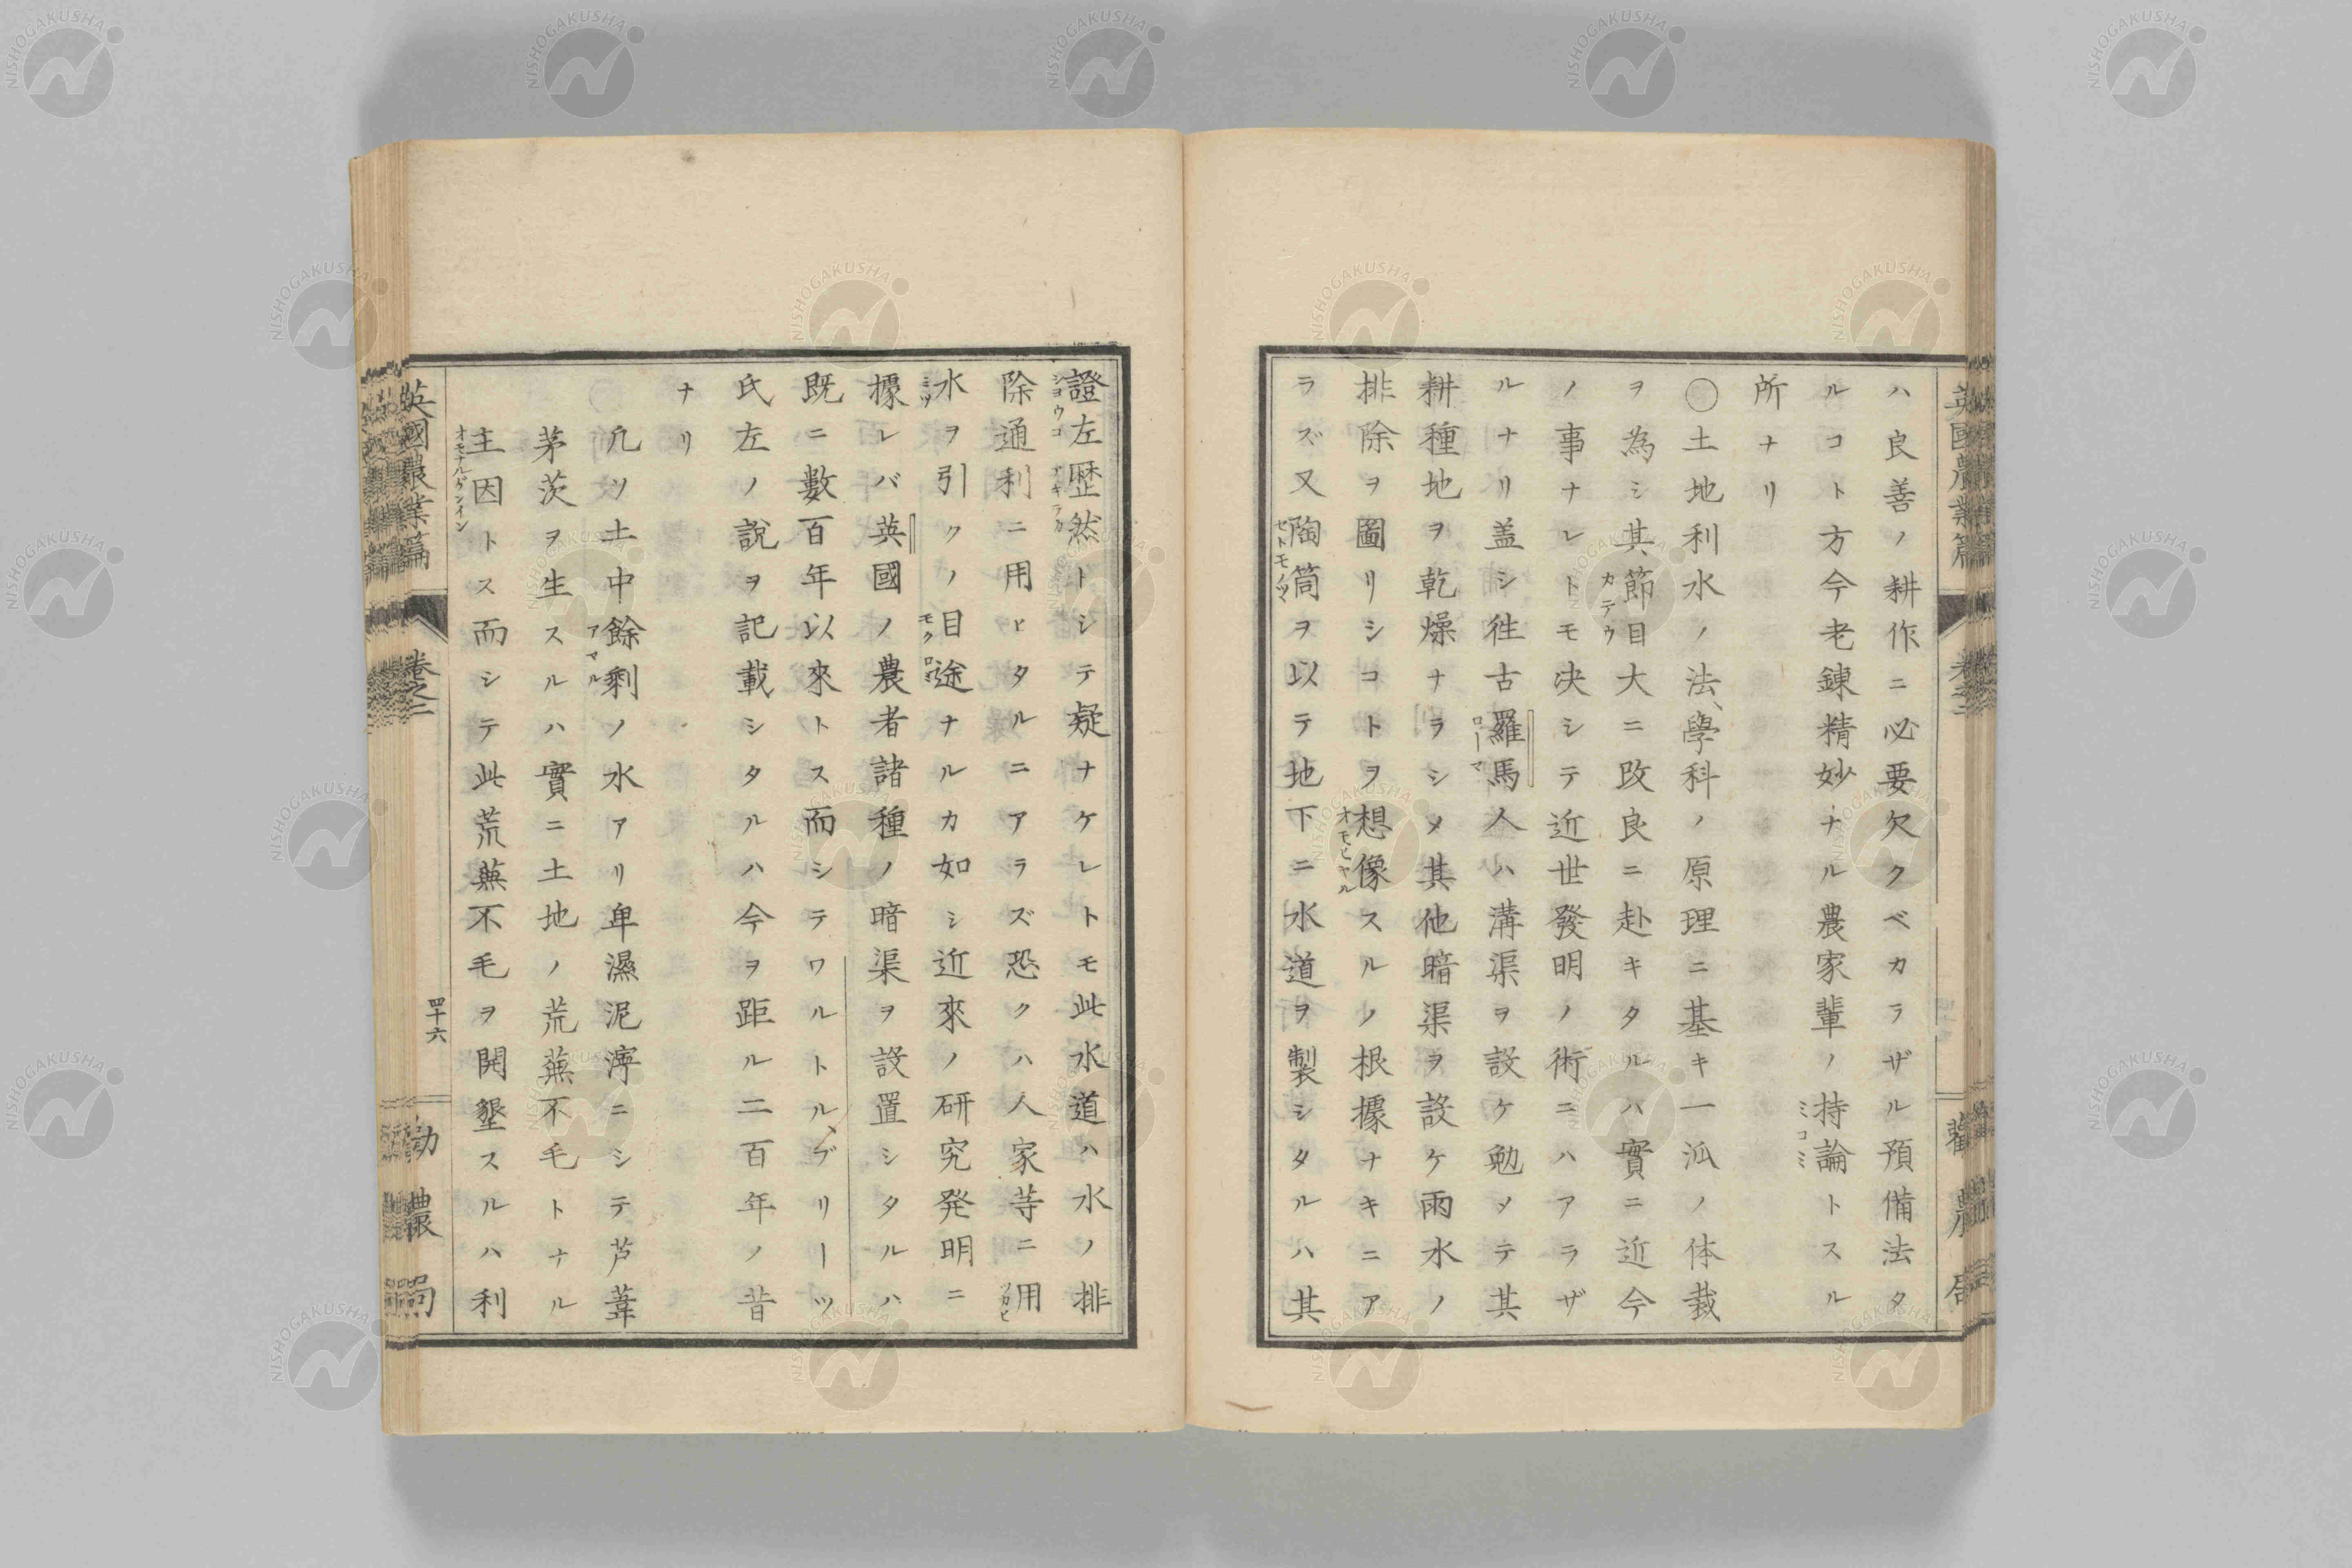 ハ良善ノ耕作ニ必要欠クベカラザル預備法タ
ルコト方今老錬精妙ナル農家輩ノ持論トスル
ミコミ
所ナリ
〇土地利水ノ法、學科ノ原理ニ基キ一派ノ体裁
ヲ為シ其節目大ニ改良ニ赴キタルハ實ニ近今
カテウ
ノ事ナレトモ決シテ近世發明ノ術ニハアラザ
ルナリ盖シ徃古羅馬人ハ溝渠ヲ設ケ勉メテ其
ローマ
耕種地ヲ乾燥ナラシメ其他暗渠ヲ設ケ雨水ノ
排除ヲ圖リシコトヲ想像スルノ根據ナキニア
オモヒヤル
ラズ又陶筒ヲ以テ地下ニ水道ヲ製シタルハ其
セトモノツヽ
證左歴然トシテ疑ナケレトモ此水道ハ水ノ排
シヨウコ アキラカ
除通利ニ用ヒタルニアラズ恐クハ人家等ニ用
ツカヒ
水ヲ引クノ目途ナルカ如シ近來ノ研究発明ニ
ミヅ モクロミ
據レバ英國ノ農者諸種ノ暗渠ヲ設置シタルハ
既ニ數百年以來トス而シテワルトル、ブリーツ
氏左ノ說ヲ記載シタルハ今ヲ距ル二百年ノ昔
ナリ
凢ソ土中餘剰ノ水アリ卑濕泥濘ニシテ芦葦
アマル
茅茨ヲ生スルハ實ニ土地ノ荒蕪不毛トナル
主因トス而シテ此荒蕪不毛ヲ開墾スルハ利
オモナルゲンイン
英國農業篇 卷之二 四十六 勸農局